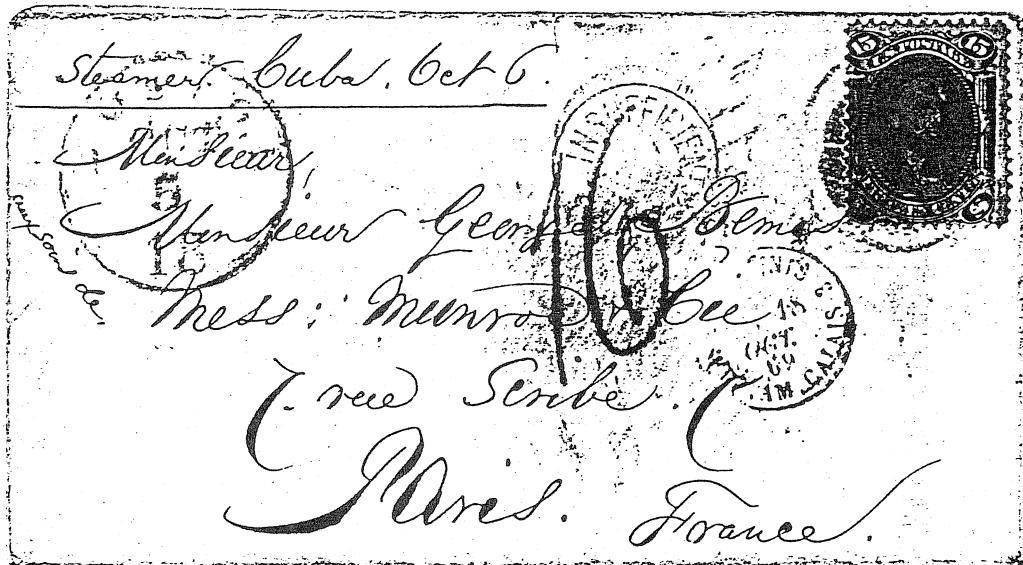 Steamer. Cuba. Oct 6.
Monsieur,
Monsieur George Bemis
aux soins de.
Mess: Munroe & Cie
7. rue Scribe.
Paris.
France.
INSUFFICIENTLY
15 U.S. POSTAGE 15
5
10
CALAIS